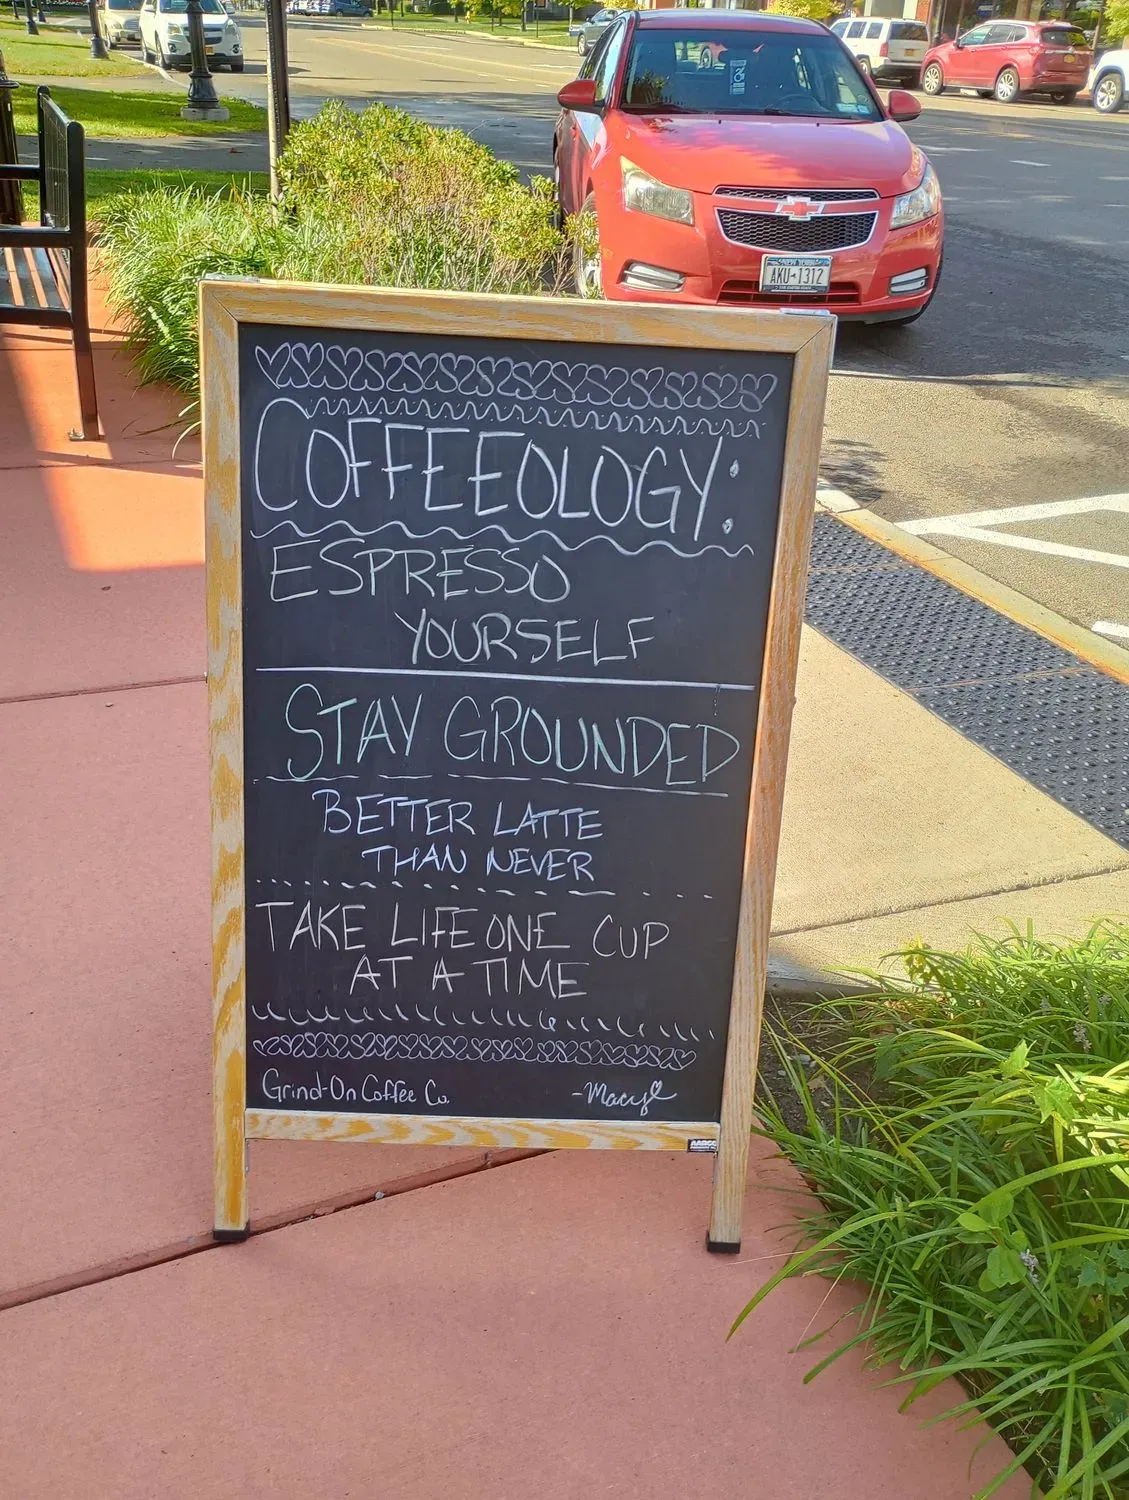 NEW YORK
AKU 1312
COFFEEOLOGY:
ESPRESSO
YOURSELF
STAY GROUNDED
BETTER LATTE
THAN NEVER
TAKE LIFE ONE CUP
AT A TIME
Grind-On Coffee Co.
-Macy
AARCO